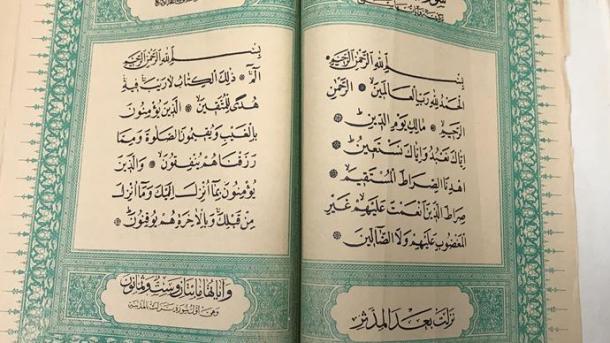 بِسْمِ اللهِ الرَّحْمٰنِ الرَّحِيمِ
اَلْحَمْدُ لِلّٰهِ رَبِّ الْعَالَمِينَ ۞ اَلرَّحْمٰنِ
الرَّحِيمِ ۞ مَالِكِ يَوْمِ الدِّينِ ۞
اِيَّاكَ نَعْبُدُ وَاِيَّاكَ نَسْتَعِينُ ۞
اِهْدِنَا الصِّرَاطَ الْمُسْتَقِيمَ ۞
صِرَاطَ الَّذِينَ اَنْعَمْتَ عَلَيْهِمْ غَيْرِ
الْمَغْضُوبِ عَلَيْهِمْ وَلَا الضَّالِّينَ ۞
نزلت بعد المدثر
بِسْمِ اللهِ الرَّحْمٰنِ الرَّحِيمِ
الٓمٓ ۞ ذٰلِكَ الْكِتَابُ لَا رَيْبَ فِيهِ
هُدًى لِلْمُتَّقِينَ ۞ اَلَّذِينَ يُؤْمِنُونَ
بِالْغَيْبِ وَيُقِيمُونَ الصَّلٰوةَ وَمِمَّا
رَزَقْنَاهُمْ يُنْفِقُونَ ۞ وَالَّذِينَ
يُؤْمِنُونَ بِمَا اُنْزِلَ اِلَيْكَ وَمَا اُنْزِلَ
مِنْ قَبْلِكَ وَبِالْاٰخِرَةِ هُمْ يُوقِنُونَ ۞
وآياتها مائتان وست وثمانون
وهي اول سورة نزلت بالمدينة